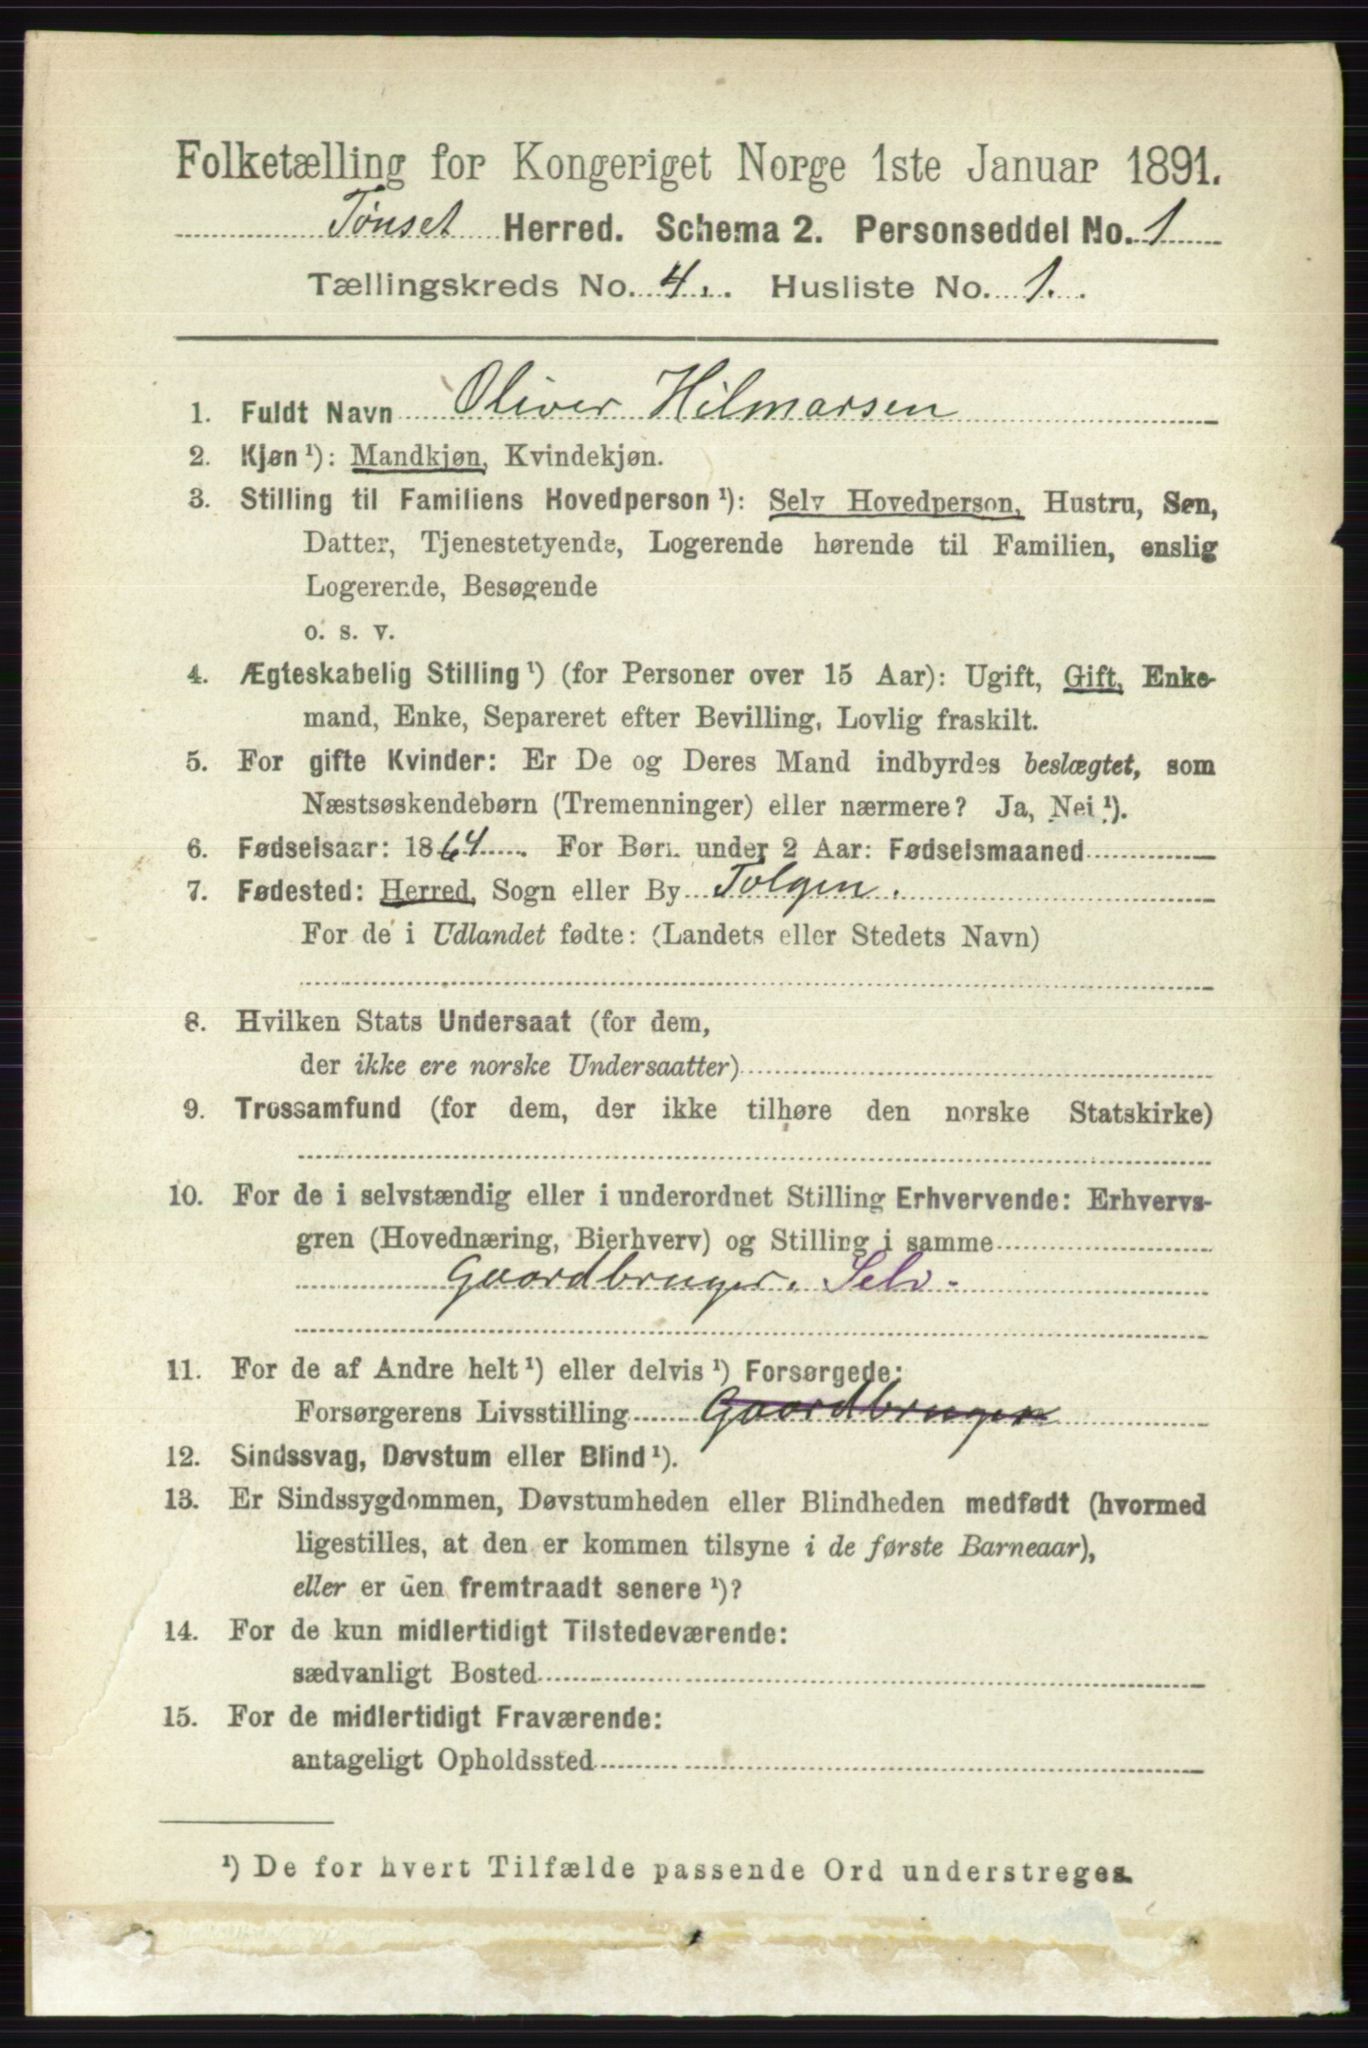 Folketælling for Kongeriget Norge 1ste Januar 1891.
Tønset Herred. Schema 2. Personseddel No. 1
Tællingskreds No. 4. Husliste No. 1.
1. Fuldt Navn Oliver Hilmarsen
2. Kjøn ¹): Mandkjøn, Kvindekjøn.
3. Stilling til Familiens Hovedperson ¹): Selv Hovedperson, Hustru, Søn,
Datter, Tjenestetyende, Logerende hørende til Familien, enslig
Logerende, Besøgende
o. s. v.
4. Ægteskabelig Stilling ¹) (for Personer over 15 Aar): Ugift, Gift, Enke-
mand, Enke, Separeret efter Bevilling, Lovlig fraskilt.
5. For gifte Kvinder: Er De og Deres Mand indbyrdes beslægtet, som
Næstsøskendebørn (Tremenninger) eller nærmere? Ja, Nei ¹).
6. Fødselsaar: 1864. For Børn under 2 Aar: Fødselsmaaned
7. Fødested: Herred, Sogn eller By Tolgen.
For de i Udlandet fødte: (Landets eller Stedets Navn)
8. Hvilken Stats Undersaat (for dem,
der ikke ere norske Undersaatter)
9. Trossamfund (for dem, der ikke tilhøre den norske Statskirke)
10. For de i selvstændig eller i underordnet Stilling Erhvervende: Erhvervs-
gren (Hovednæring, Bierhverv) og Stilling i samme
Gaardbruger. Selv.
11. For de af Andre helt ¹) eller delvis ¹) Forsørgede:
Forsørgerens Livsstilling Gaardbruger
12. Sindssvag, Døvstum eller Blind ¹).
13. Er Sindssygdommen, Døvstumheden eller Blindheden medfødt (hvormed
ligestilles, at den er kommen tilsyne i de første Barneaar),
eller er den fremtraadt senere ¹)?
14. For de kun midlertidigt Tilstedeværende:
sædvanligt Bosted
15. For de midlertidigt Fraværende:
antageligt Opholdssted
¹) De for hvert Tilfælde passende Ord understreges.